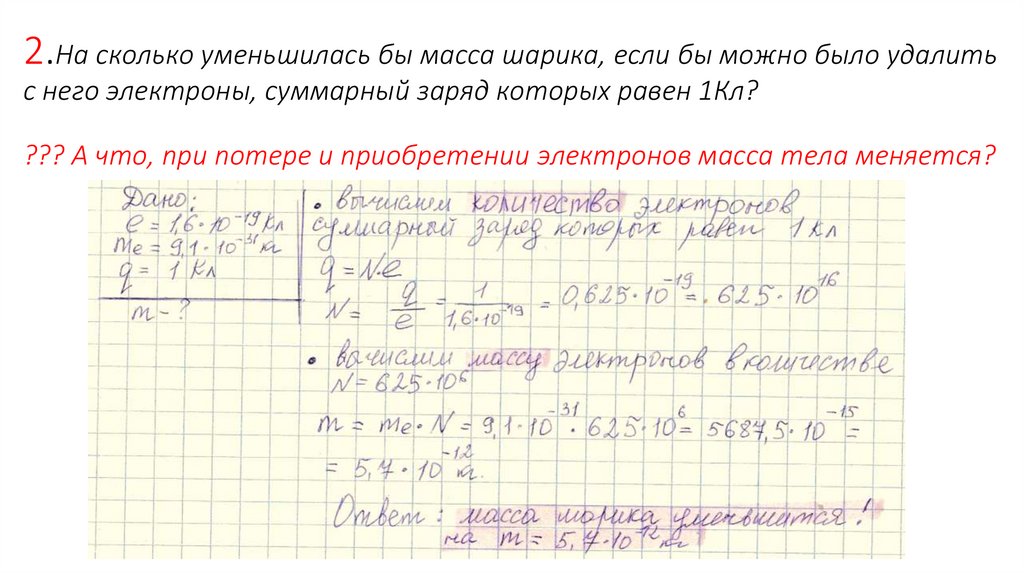 2.На сколько уменьшилась бы масса шарика, если бы можно было удалить
с него электроны, суммарный заряд которых равен 1Кл?
??? А что, при потере и приобретении электронов масса тела меняется?
Дано:
e = 1,6·10⁻¹⁹ Кл
me = 9,1·10⁻³¹ кг
q = 1 Кл
m - ?
• вычислим количество электронов
суммарный заряд которых равен 1 Кл
q = N·e
N = q/e = 1/1,6·10⁻¹⁹ = 0,625·10⁻¹⁹ = 625·10¹⁶
• вычислим массу электронов в количестве
N = 625·10⁶
m = me·N = 9,1·10⁻³¹ · 625·10⁶ = 5687,5·10⁻¹⁵ =
= 5,7·10⁻¹² кг.
Ответ: масса шарика уменьшится!
на m = 5,7·10⁻¹² кг